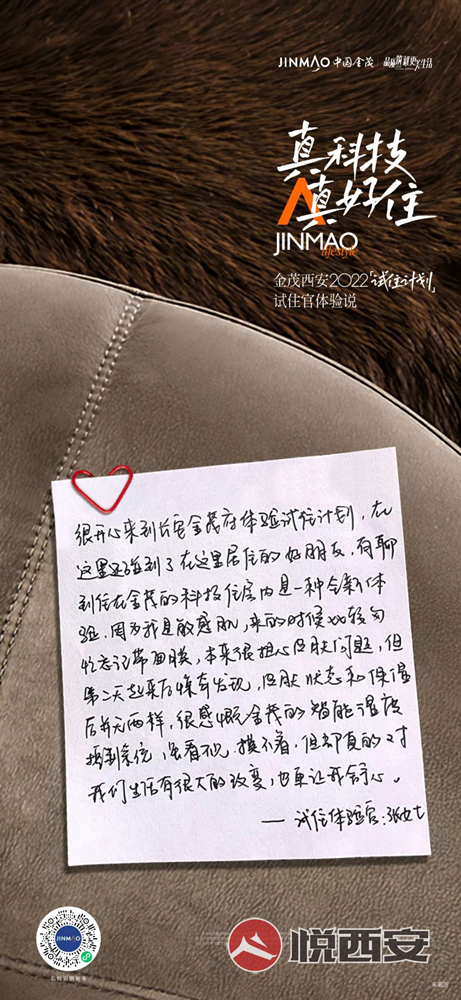 JINMAO 中国金茂 品质筑就更美生活
真科技
真好住
JINMAO
lifestyle
金茂西安2022「试住计划」
试住官体验说
很开心来到长安金茂府体验试住计划，在
这里还碰到了在这里居住的好朋友，有聊
到住在金茂的科技住宅内是一种全新体
验。因为我是敏感肌，来的时候比较匆
忙忘记带面膜，本来很担心皮肤问题，但
第二天起来后惊奇发现，皮肤状态和保湿
后并无两样，很感慨金茂的智能湿度
调制系统，说看不见，摸不着，但却真的对
我们生活有很大的改变，也更让我舒心。
— 试住体验官:张女士
JINMAO
悦西安